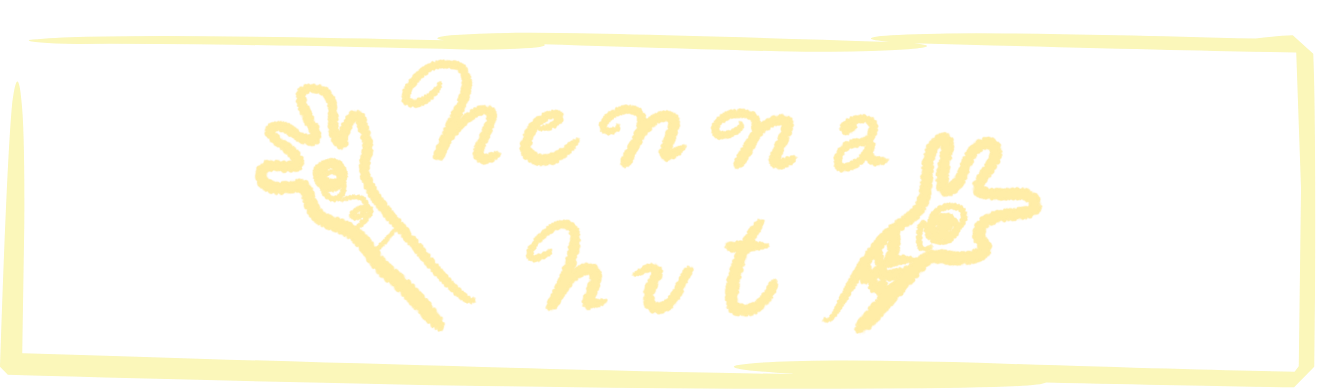 henna
hut